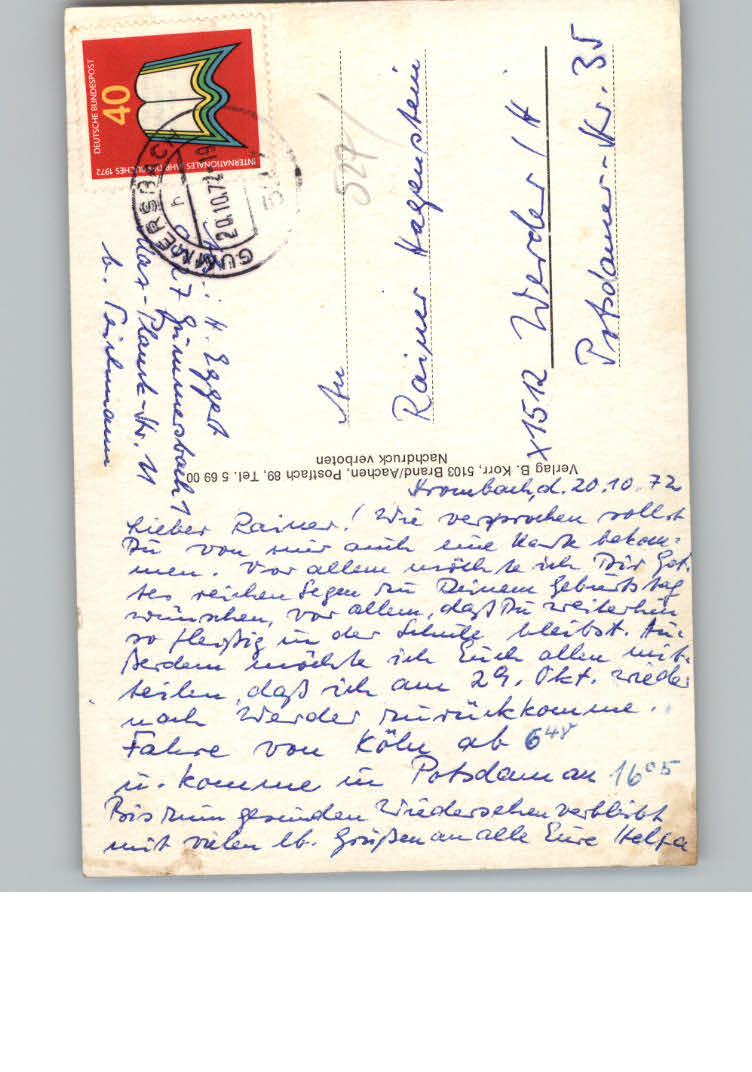 DEUTSCHE BUNDESPOST
40
INTERNATIONALES JAHR DES BUCHES 1972
GUMMERSBACH
20.10.72-19
h
527
H. Eggert
527 Gummersbach 1
Max-Planck-Str. 11
b. Teichmann
An
Rainer Hagenstein
x1512 Werder/H
Potsdamer-Str. 35
Verlag B. Korr, 5103 Brand/Aachen, Postfach 89, Tel. 5 69 00
Nachdruck verboten
Strombach, d. 20.10.72
Lieber Rainer! Wie versprochen sollst
Du von mir auch eine Karte bekom-
men. Vor allem möchte ich Dir Got-
tes reichen Segen zu Deinem Geburtstag
wünschen, vor allem, daß Du weiterhin
so fleißig in der Schule bleibst. Au-
ßerdem möchte ich Euch allen mit-
teilen, daß ich am 29. Okt. wieder
nach Werder zurückkomme.
Fahre von Köln ab 6⁴⁸
u. komme in Potsdam an 16⁰⁵
Bis zum gesunden Wiedersehen verbleibt
mit vielen lb. Grüßen an alle Eure Helga